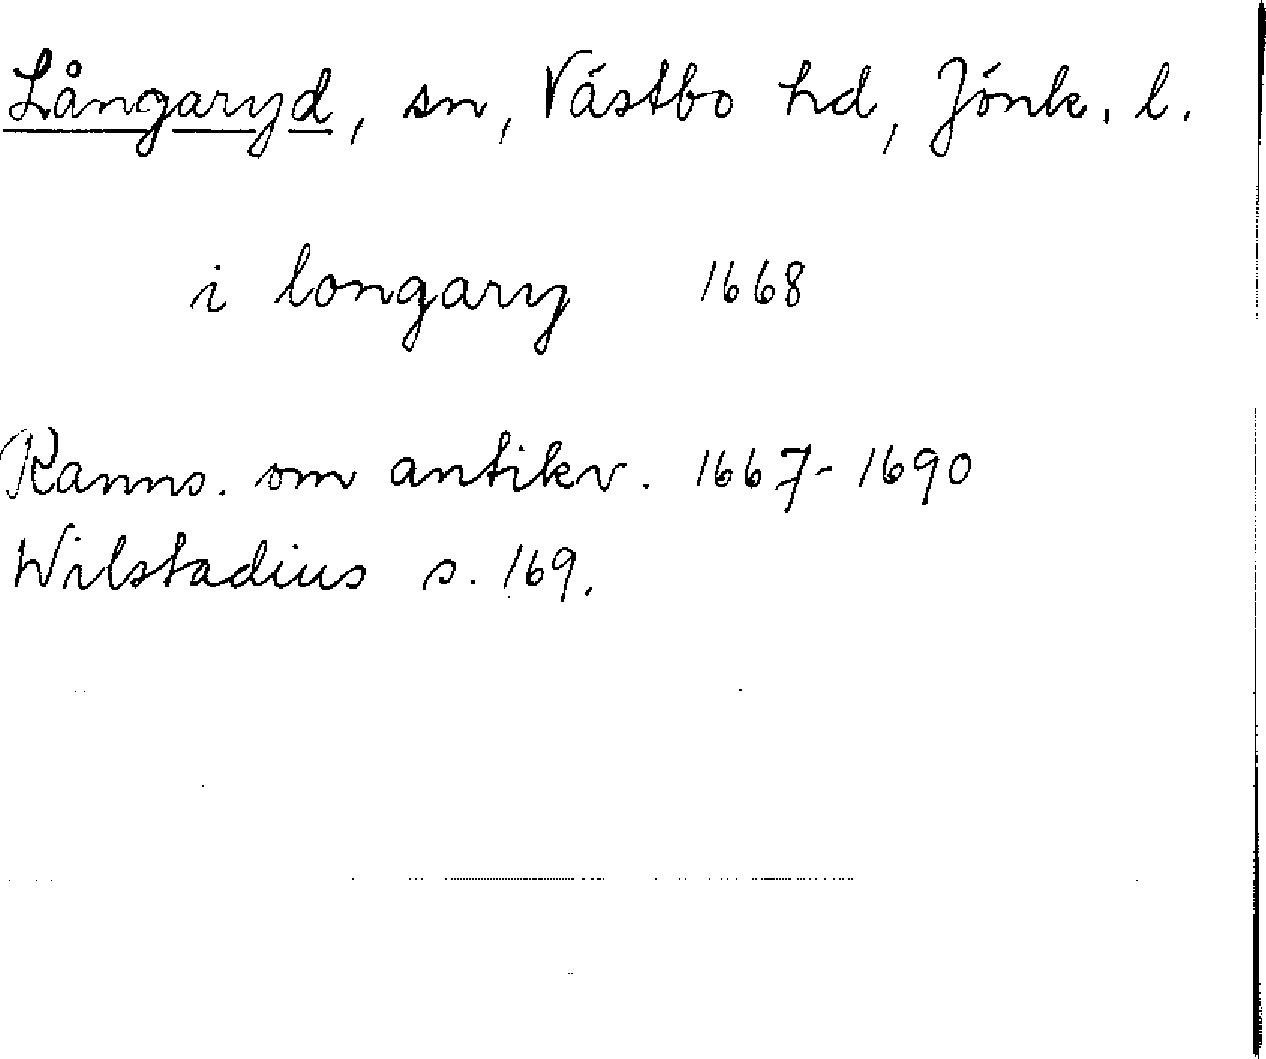 Långaryd, sn, Västbo hd, Jönk. l.
i longary 1668
Ranns. om antikv. 1667-1690
Wilstadius s. 169.